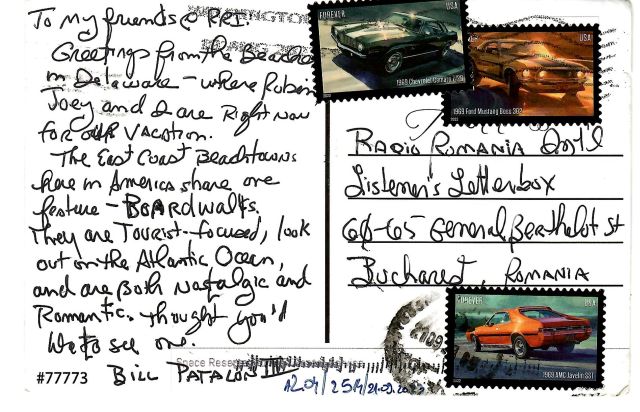 To My friends @ RRI:
Greetings from the Beaches
in Delaware - where Robin
Joey and I are Right Now
FOR OUR VACATION.
The East Coast Beachtowns
here in America share one
feature - BOARDWALKS.
They are Tourist-focused, look
out on the Atlantic Ocean,
and are Both Nostalgic and
Romantic. Thought you'd
like to see one.
BILL PATALON III
#77773
Space Rese
FOREVER USA
1969 Chevrolet Camaro Z/28
USA
1969 Ford Mustang Boss 302
RADIO ROMANIA Int'l
Listener's Letterbox
60-65 General Berthelot St
Bucharest, ROMANIA
FOREVER USA
1969 AMC Javelin SST